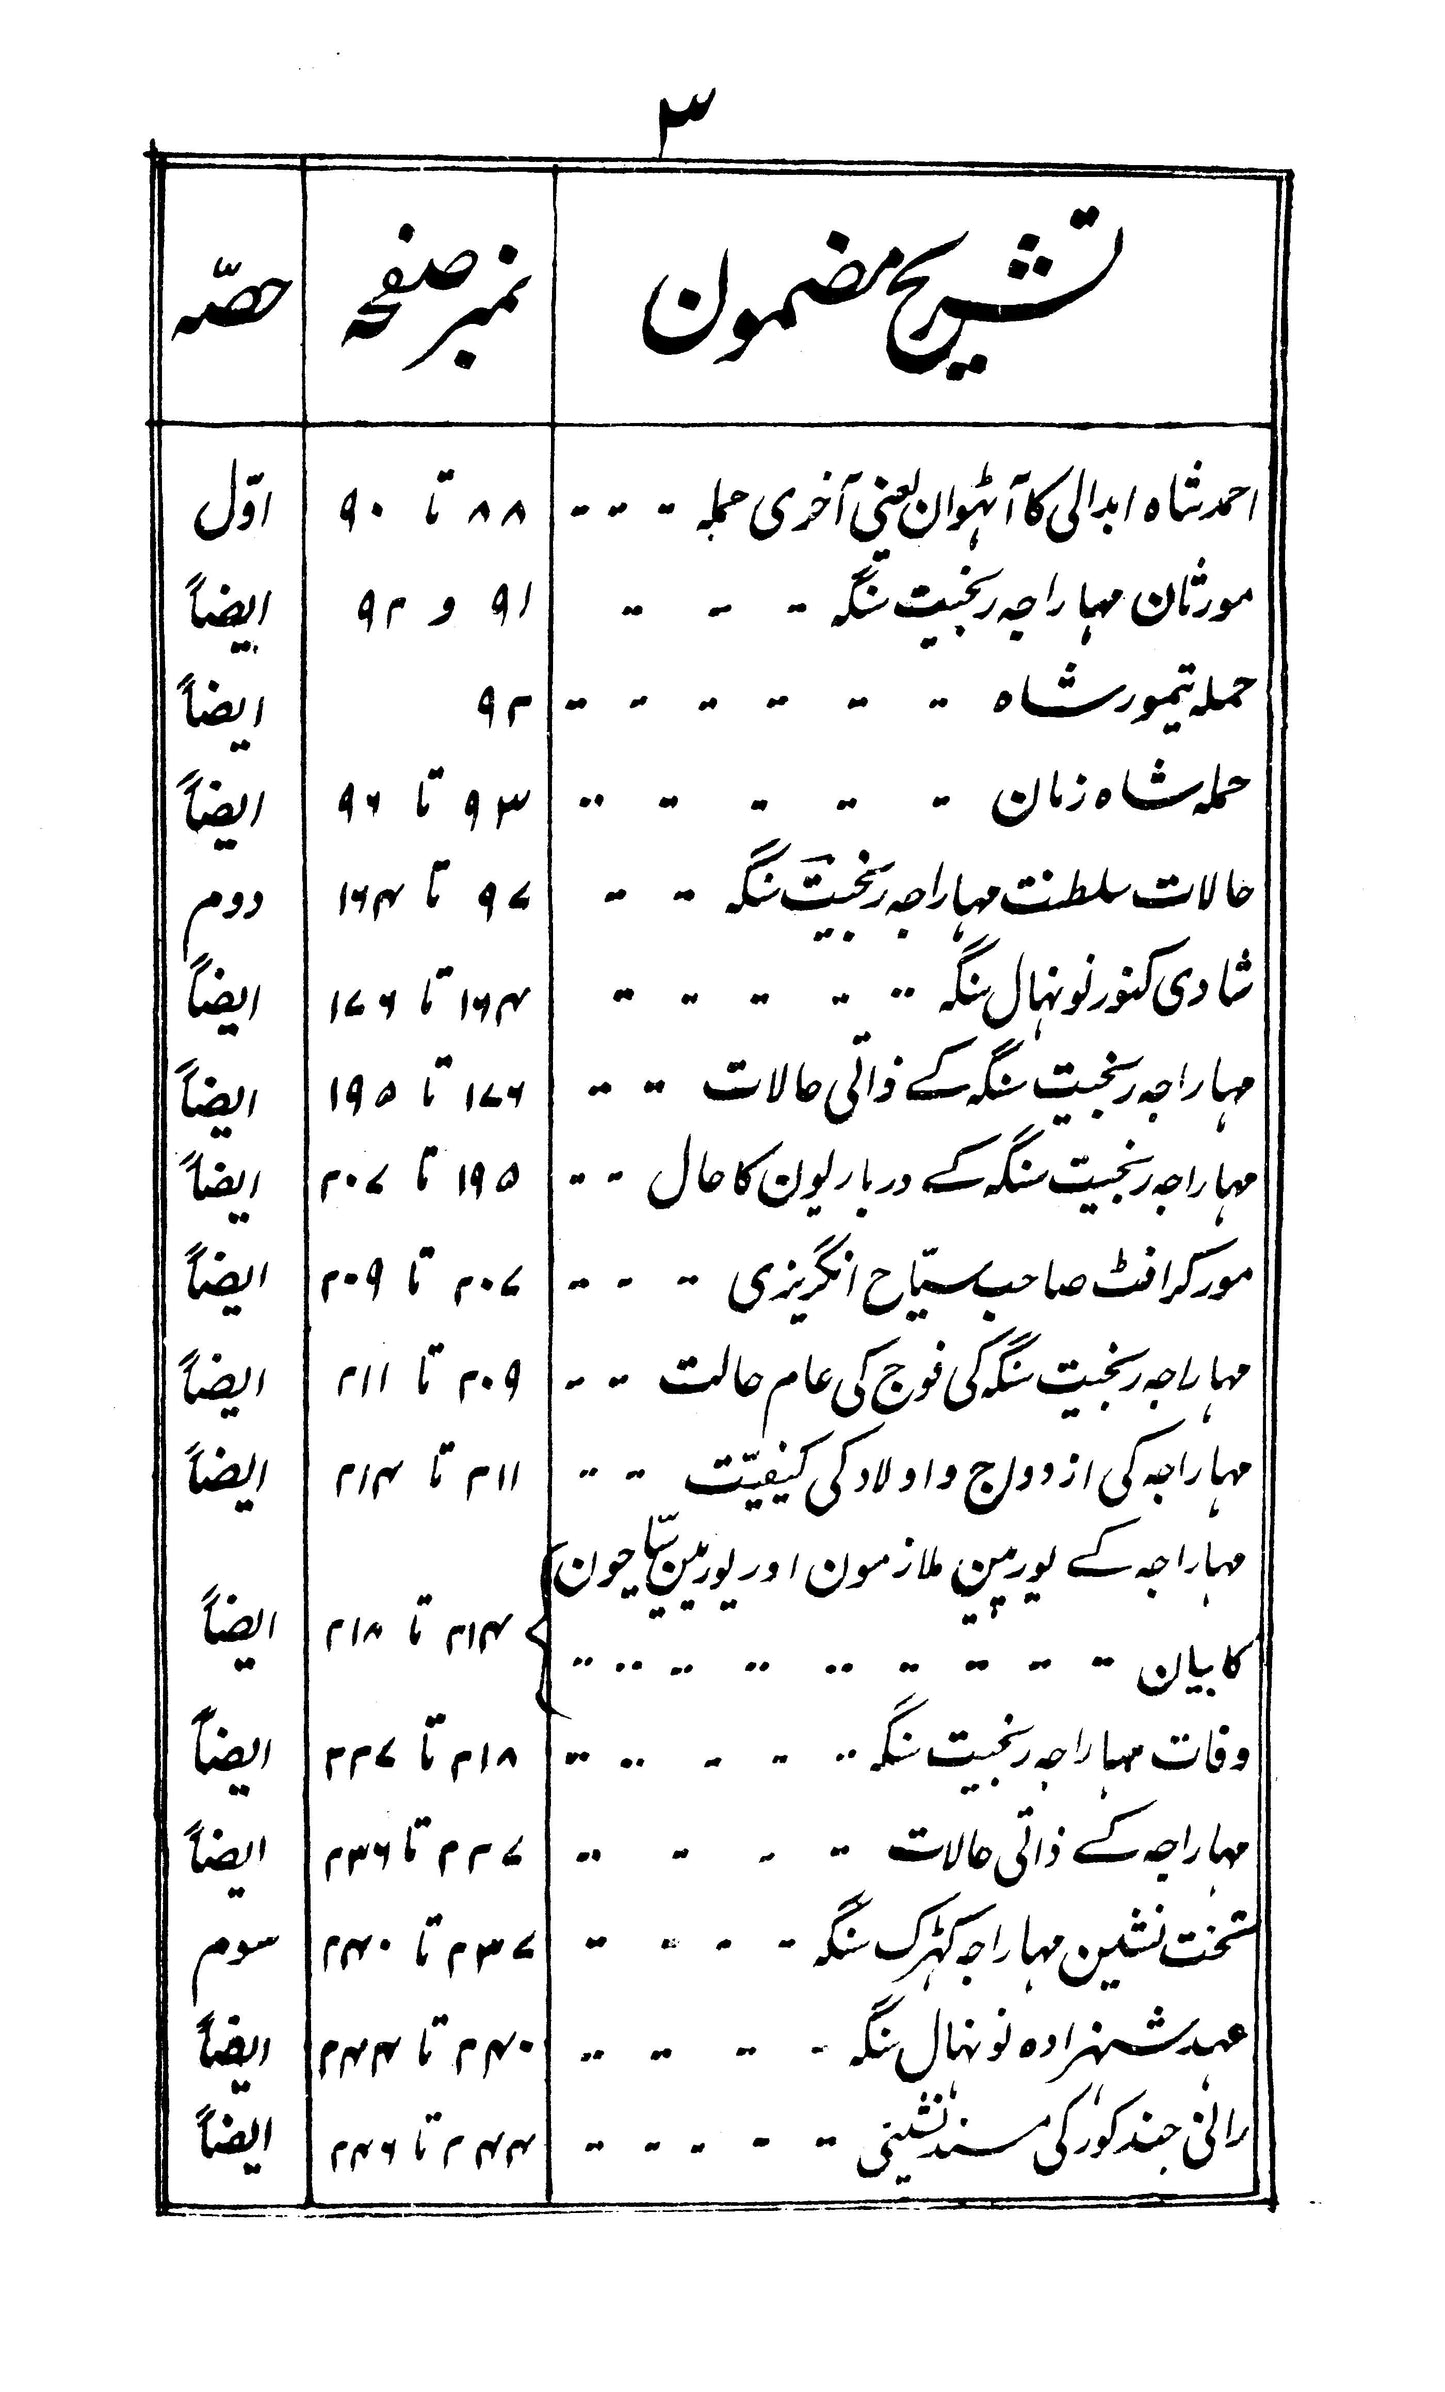 ۳
تشریح مضمون نمبر صفحہ حصّہ
احمد شاہ ابدالی کا آٹھوان یعنی آخری حملہ - - - ۸۸ تا ۹۰ اوّل
مورثان مہاراجہ رنجیت سنگہ - - - ۹۱ و ۹۲ ایضاً
حملہ تیمور شاہ - - - - - - ۹۲ ایضاً
حملہ شاہ زمان - - - - - ۹۳ تا ۹۶ ایضاً
حالات سلطنت مہاراجہ رنجیت سنگہ - - ۹۷ تا ۱۶۴ دوم
شادی کنور نونہال سنگہ - - - - - ۱۶۴ تا ۱۷۶ ایضاً
مہاراجہ رنجیت سنگہ کے ذاتی حالات - - ۱۷۶ تا ۱۹۵ ایضاً
مہاراجہ رنجیت سنگہ کے درباریون کا حال - - ۱۹۵ تا ۲۰۷ ایضاً
مورکرافٹ صاحب سیّاح انگریزی - - - ۲۰۷ تا ۲۰۹ ایضاً
مہاراجہ رنجیت سنگہ کی فوج کی عام حالت - - ۲۰۹ تا ۲۱۱ ایضاً
مہاراجہ کی ازدواج و اولاد کی کیفیّت - - ۲۱۱ تا ۲۱۴ ایضاً
مہاراجہ کے یورپین ملازمون اور یورپین سیّاحون
کا بیان - - - - - - - - - ۲۱۴ تا ۲۱۸ ایضاً
وفات مہاراجہ رنجیت سنگہ - - - - - ۲۱۸ تا ۲۲۷ ایضاً
مہاراجہ کے ذاتی حالات - - - - ۲۲۷ تا ۲۳۶ ایضاً
تخت نشین مہاراجہ کہڑک سنگہ - - - - ۲۳۷ تا ۲۴۰ سوم
عہد شہزادہ نونہال سنگہ - - - - ۲۴۰ تا ۲۴۴ ایضاً
رانی جند کور کی مسند نشینی - - - - - ۲۴۴ تا ۲۴۶ ایضاً